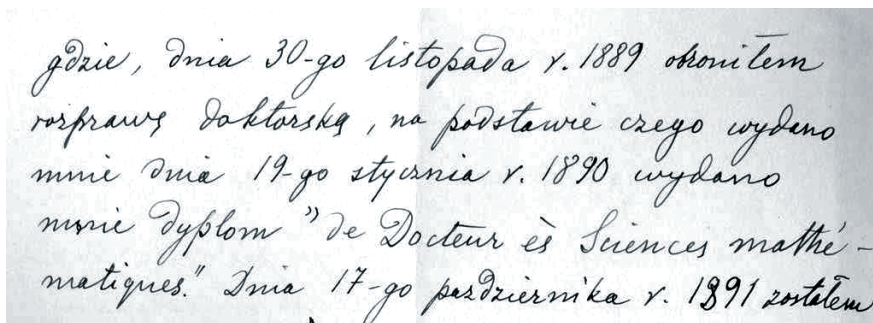 gdzie, dnia 30-go listopada r. 1889 obroniłem
rozprawę doktorską, na podstawie czego wydano
mnie dnia 19-go stycznia r. 1890 wydano
mnie dyplom "de Docteur ès Sciences mathé-
matiques." Dnia 17-go października r. 1891 zostałem